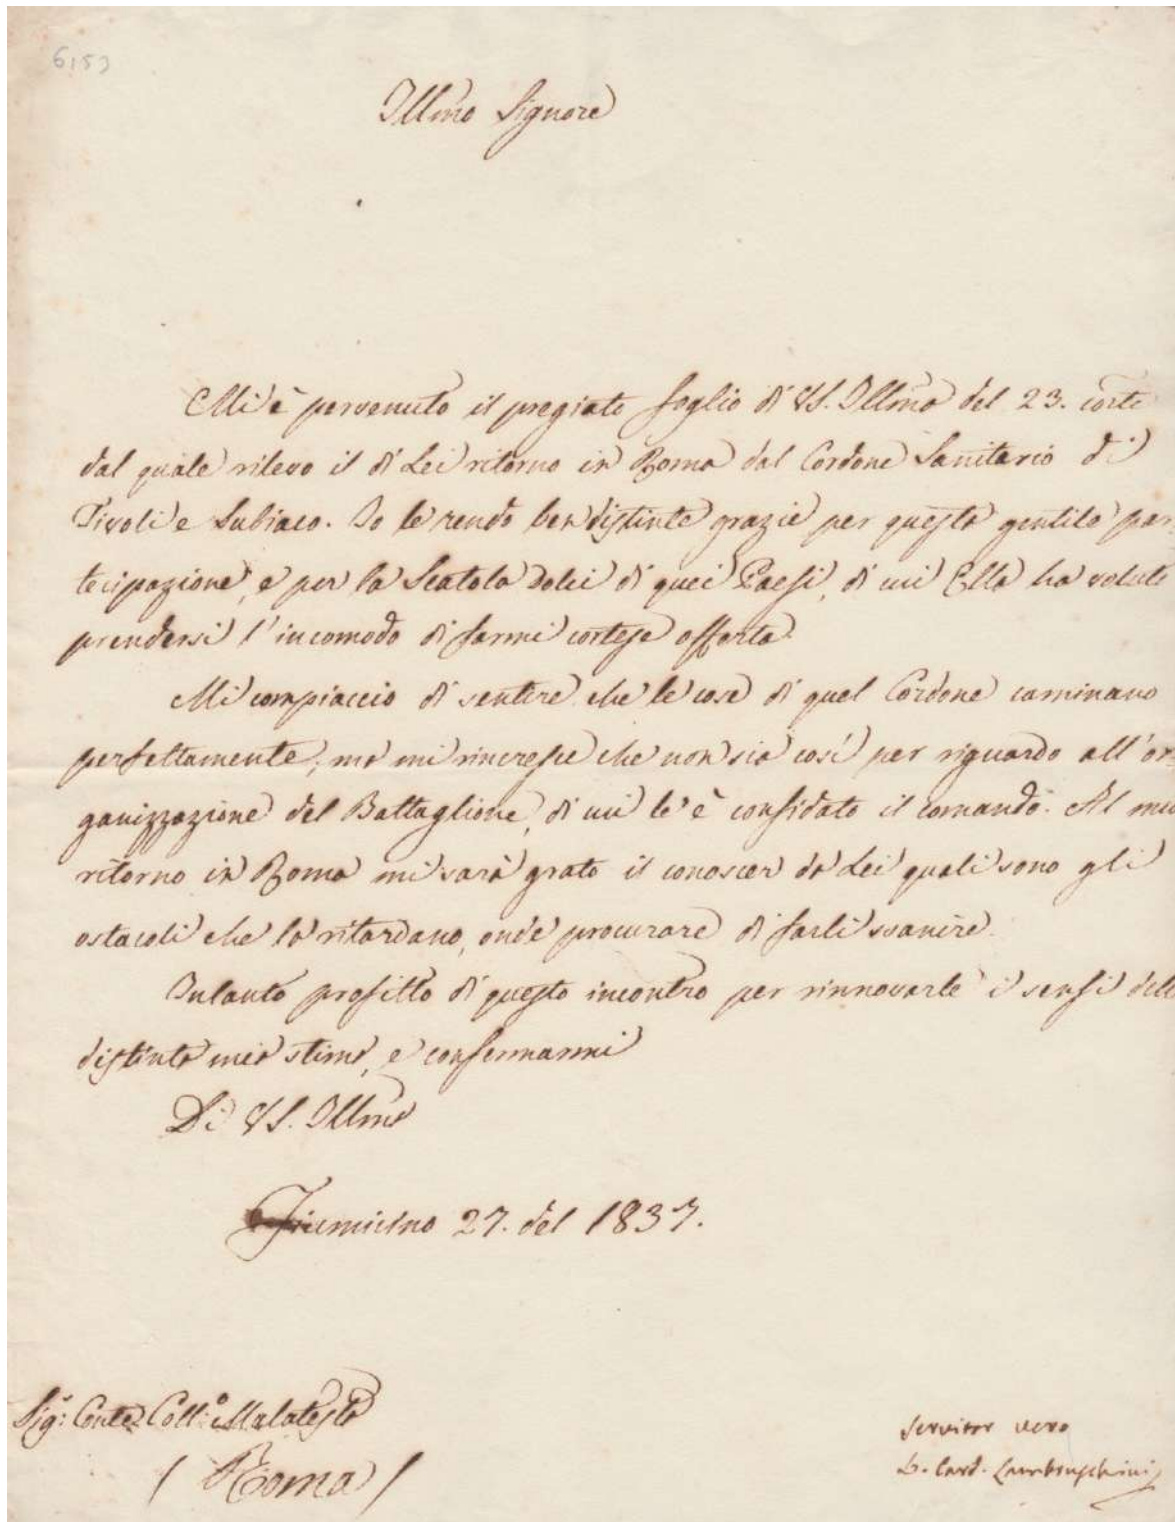 6153
Illmo Signore
Mi è pervenuto il pregiato foglio di VS. Illma del 23. corrte
dal quale rilevo il di Lei ritorno in Roma dal Cordone Sanitario di
Tivoli e Subiaco. Io le rendo ben distinte grazie per questa gentile par-
tecipazione, e per la Scatola dolci di quei Paesi, di cui Ella ha voluto
prendersi l'incomodo di farmi cortese offerta.
Mi compiaccio di sentire che le cose di quel Cordone caminano
perfettamente; ma mi rincresce che non sia così per riguardo all'or-
ganizzazione del Battaglione, di cui le è confidato il comando. Al mio
ritorno in Roma mi sarà grato il conoscer da Lei quali sono gli
ostacoli che la ritardano, onde procurare di farli svanire.
Intanto profitto di questo incontro per rinnovarle i sensi della
distinta mia stima, e confermarmi
Di VS. Illma
Fiumicino 27. del 1837.
Sig: Conte Coll:o Malatesta
( Roma )
Servitor vero
L. Card. Lambruschini